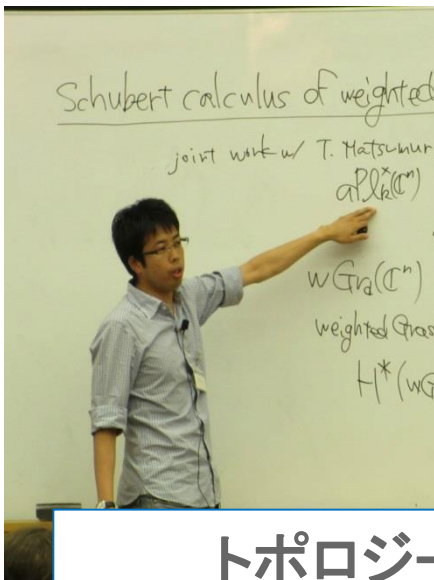 Schubert calculus of weighted
joint work w/ T. Matsumur
aPl_k^×(ℂ^n)
wGr_d(ℂ^n)
weighted Gras
H*(wG
トポロジー